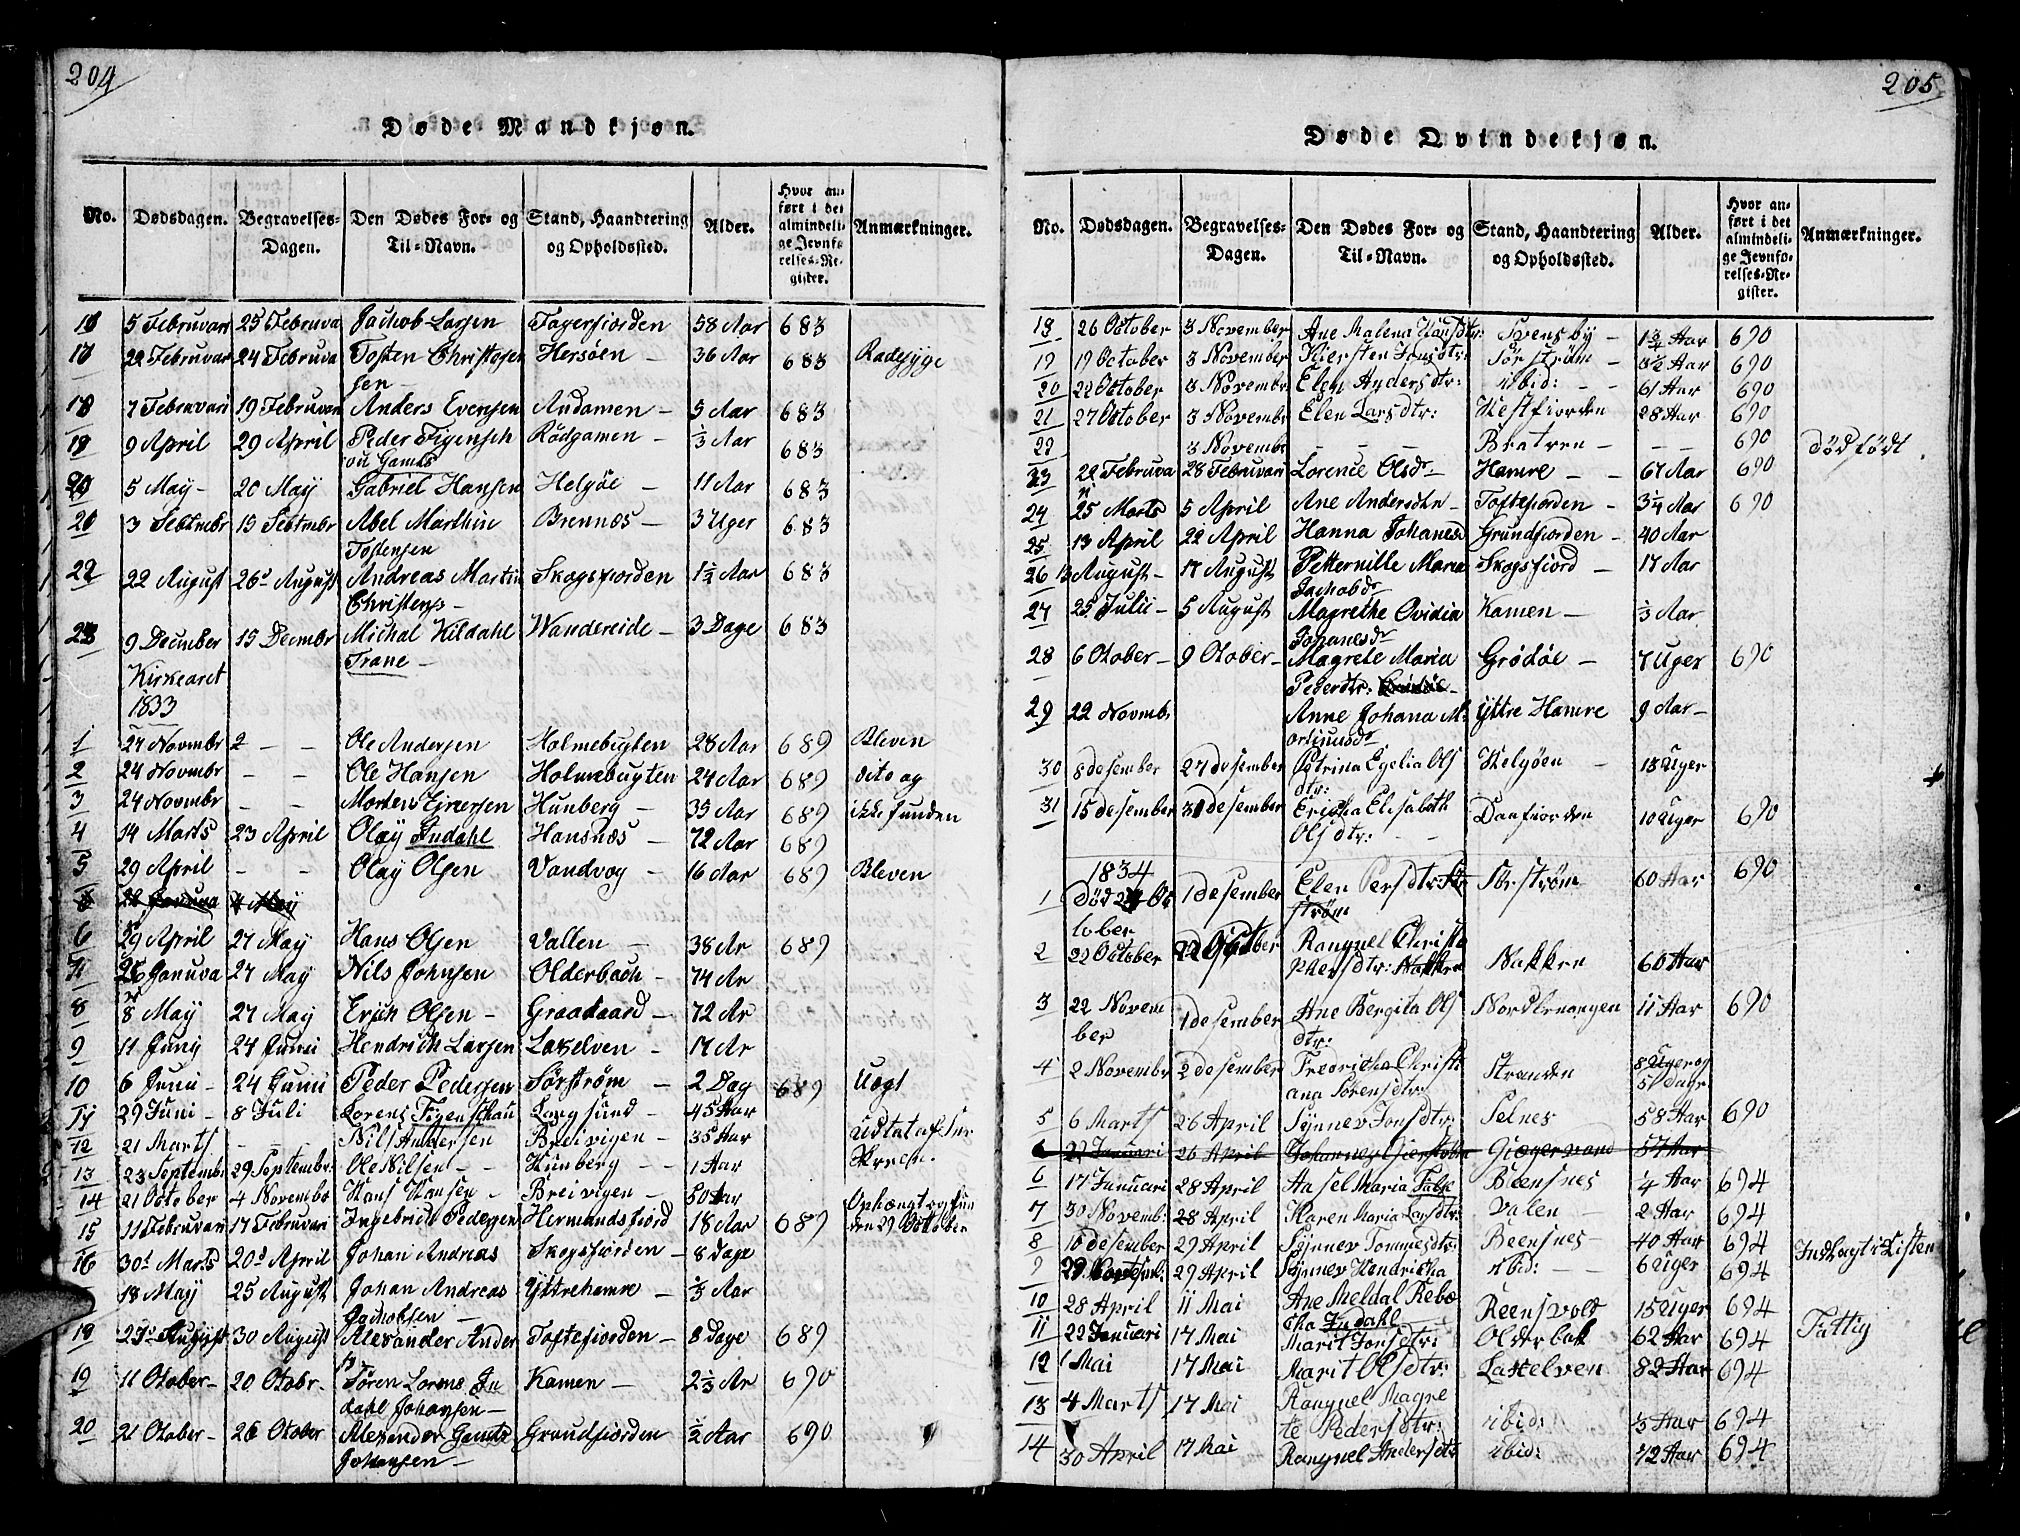 204
Døde Mandkjøn.
No. Dødsdagen. Begravelses-Dagen. Den Dødes For- og Til-Navn. Stand, Haandtering og Opholdssted. Alder. Hvor anført i det almindelige Jevnførelses-Register. Anmærkninger.
16 5 Februvari 25 Februva Jachob Larsen Fagerfiorden 58 Aar 683
17 22 Februvar 24 Februva Tosten Christopsen Hersøen – 36 Aar 683 Radesyge
sen –
18 7 Februvari 19 Februvari Anders Evensen Andamen – 5 Aar 683
19 9 April 29 April Peder Figensch Rödgamen – 1/3 Aar 683
ou Gamst
20 5 May – 20 May Gabriel Hansen Helyöe – 11 Aar 683
21 3 Sebtmbr 15 Sebtmbr Abel Marthin Brennæs – 3 Uger 683
Tostensen
22 22 August 26d August Andreas Martin Skogsfiorden 1½ Aar 683
Christens –
23 9 December 15 Decmbr Michal Kildahl Wandereide – 3 Dage 683
Kirkearet Trane –
1833
1 27 Novmbr 2 – – Ole Andersen Holmebugten 28 Aar 689 Bleven
2 24 Novmbr – – Ole Hansen Holmebugten 24 Aar 689 dito og
3 24 Novmbr – – Morten Ejnersen Hunberg – 35 Aar 689 ikke funden
4 14 Marts 23 April Olay Indahl Hansnæs – 72 Aar 689
5 29 April – – Olay Olsen Vandvog – 16 Aar 689 Bleven
6 29 April 27 May Hans Olsen Valten – 38 Ar 689
7 26 Januva 27 May Nils Johnsen Olderbach – 74 Ar
8 8 May 27 May Erich Olsen – Graadaard – 72 Ar
9 11 Juny 24 Junii Hendrich Larsen Laxelven – 17 Ar
10 6 Junii – 24 Junii Peder Pedersen Sörström – 2 Dag 689 Uægt
11 29 Juni – 8 Juli Lorens Figenschau Langsund – 45 Aar
12 21 Marts – – – Nils Andersen Breivigen – 35 Aar
13 23 Septembr 29 Septembr: Ole Nilsen – – Hunberg – – 1 Aar
14 21 October 4 Novembe Hans Hansen – Breivigen – 50 Aar
15 11 Februvari 17 Februvari Ingebrict Pedersen Hermandsfiord 18 Aar 689 den 29 October
16 30d Marts 20d April Johan Andreas Skogsfiorden – 8 Dage
18 May 25 August Johan Andreas Yttrehamre – 1/3 Aar
Jachobsen –
19 23d August 30 August Alexander Ander Toftefiorden – 8 Dage 689
19 11 Otober – 20 Otobr – Sören Lorens In Kamen – 2⅓ Ar 690
dahl Johansen –
20 21 Otober – 26 Otober Alexander Gamst Grundfiorden ½ Aar 690
Johansen –
205
Døde Qvindekjøn.
No. Dødsdagen. Begravelses-Dagen. Den Dødes For- og Til-Navn. Stand, Haandtering og Opholdssted. Alder. Hvor anført i det almindelige Jevnførelses-Register. Anmærkninger.
18 26 October 3 November Ane Malena Hansdtr: Svensby – 1¾ Aar 690
19 19 October 3 November Kiersten Jonsdtr: Sörström – 0½ Aar 690
20 22 October 3 Novembr Elen Andersdtr: ibid: – – 61 Aar 690
21 27 October 3 Novembr Elen Larsdtr: Westfiorden 28 Aar 690
22 3 Novembr – – – Bratren – – – 690 Død født
23 22 Februva 28 Februvari Lorence Olsdr – Hamre – – 67 Aar 690
24 25 Marts 5 April Ane Andersdtr – Toftefiorden – 3¼ Aar 690
25 13 April 22 April Hanna Johanesd Grundfiorden – 40 Aar
26 13 August – 17 August Petternille Maria Skogsfiord – 17 Aar
Jachobdr
27 25 Julii – 5 August Magrethe Ovidia Kamen – 1/3 Aar
Johanesdr
28 6 Otober – 9 Otober – Magrete Maria Grödöe – 7 Uger 690
Pederdtr:
29 22 Novmb: Anne Johana M: Yttre Hamre 9 Aar –
30 8 desember 27 desember Petrina Egelia Ols Helgöen – 18 Uger
dtr:
31 15 desember 30 desember Ericka Elisabeth Danfiorden 10 Uger 690
Olsdtr: – –
1834
1 Død 24 Oc 1 desember Elen Persdtr: Sörström 60 Aar 690
tober
2 22 October 22 October Rangnel Christo Nakken 60 Aar
phersdtr: Nakken
3 22 Novem 1 desember Ane Bergita Ols Nordlenangen 11 Aar 690
ber dtr:
4 2 Novembr 2 desember Fredricka Christi Stranden 8 Uger og
ana Sörensdtr: 5 dage
5 6 Marts 26 April Synnev Jonsdtr: Selnes 58 Aar 690
6 27 Januari 26 April Johannes 57 Aar
6 17 Januari 28 April Aasel Maria Falk Beensnes ¼ Aar 694
7 30 Novemb: 28 April Karen Maria Larsdtr: Valen – 2 Aar 694
8 16 desember 29 April Synnev Tommesdtr: Beensnes – 40 Aar 694 Indlagt i Kisten
9 29 April Synnev Hendricka ibid: – 6 Uger 694
10 28 April 11 Mai Ane Meldal Rebe Reensvold 15 Uger 694
cka Indahl
11 22 Januari 17 Mai Marit Jonsdtr: Olderbak 62 Aar 694 Fattig
12 1 Mai 17 Mai Marit Olsdtr: Laxelven 82 Aar 694
13 4 Marts 17 Mai Rangnel Magre ibid: 1/3 Aar 694
te Pedersdtr:
14 30 April 17 Mai Rangnel Andersdtr ibid: 72 Aar 694